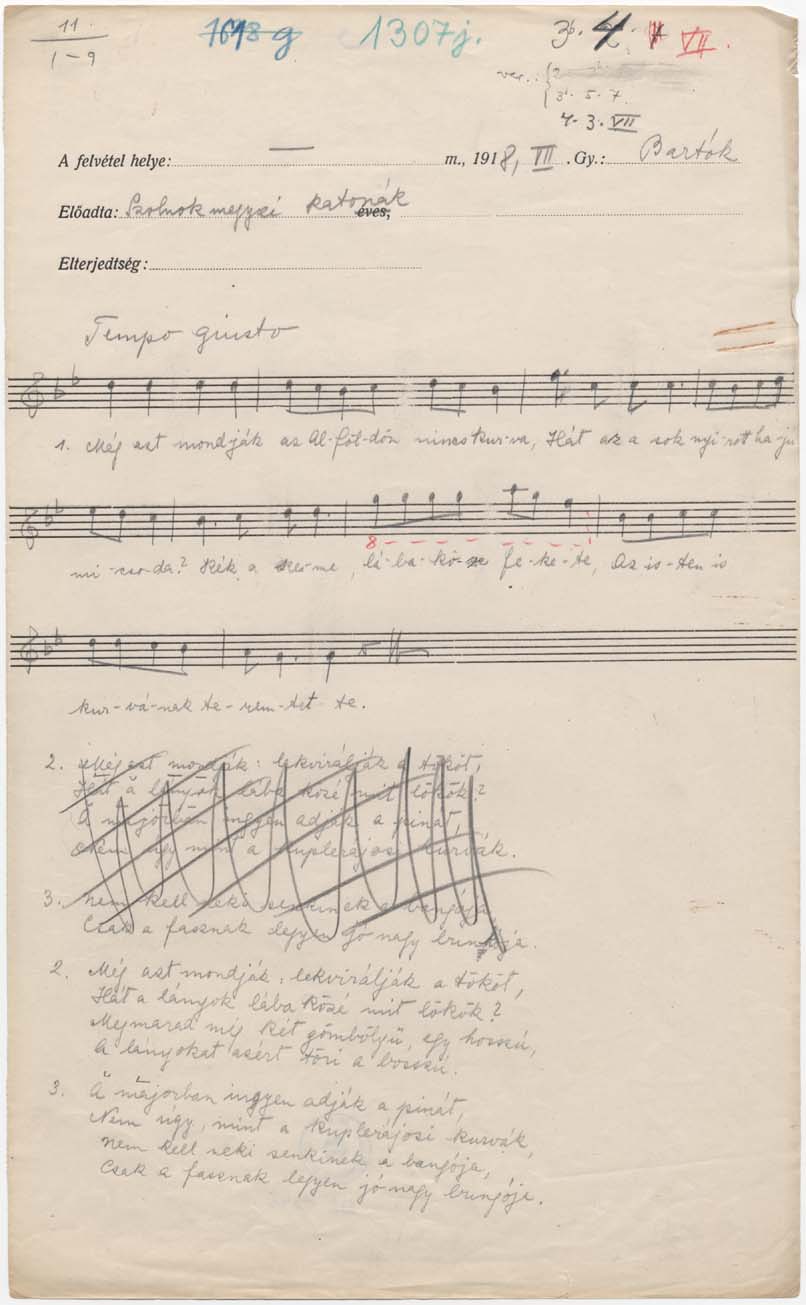 11.
1-9
1307j.
3b. 4.
VII.
var.: 2
3b. 5. 7.
4. 3. VII
A felvétel helye: — m., 1918, VII. Gy.: Bartók
Előadta: Szolnokmegyei katonák éves,
Elterjedtség:
Tempo giusto
1. Még azt mondják az Al-föl-dön nincs kur-va, Hát az a sok nyi-rott ha-ju
mi-cso-da? Kék a sze-me, lá-ba-kö-ze fe-ke-te, Az is-ten is
8
kur-vá-nak te-rem-tet-te.
2. Még azt mondják: lekvirálják a tököt,
Hát a lányok lába közé mit lökök?
A majorban ingyen adják a pinát,
Nem úgy mint a kuplerájosi kurvák.
3. Nem kell neki senkinek a bangója,
Csak a fasznak legyen jó nagy bringója.
2. Még azt mondják: lekvirálják a tököt,
Hát a lányok lába közé mit lökök?
Megmarad még két gömbölyű, egy hosszú,
A lányokat azért töri a bosszú.
3. A majorban ingyen adják a pinát,
Nem úgy, mint a kuplerájosi kurvák,
Nem kell neki senkinek a bangója,
Csak a fasznak legyen jó nagy bringója.